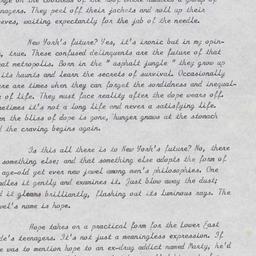 nagers. They peel off their jackets and roll up their
eves, waiting expectantly for the job of the needle.
New York's future? Yes, it's ironic but in my opin-
, true. These confused delinquents are the future of that
eat metropolis. Born in the "asphalt jungle" they grow up
its haunts and learn the secrets of survival. Occasionally
ere are times when they can forget the sordidness and inequal-
of life. They must face reality after the dope wears off.
metimes it's not a long life and never a satisfying life.
en the bliss of dope is gone, hunger gnaws at the stomach
d the craving begins again.
Is this all there is to New York's future? No, there
something else; and that something else adopts the form of
age-old yet ever new jewel among men's philosophies. One
ndles it gently and examines it. Just blow away the dust;
d it gleams brilliantly, flashing out its luminous rays. The
wel's name is hope.
Hope takes on a practical form for the Lower East
de's teenagers. It's not just a meaningless expression. If
e was to mention hope to an ex-drug addict named Marty, he'd